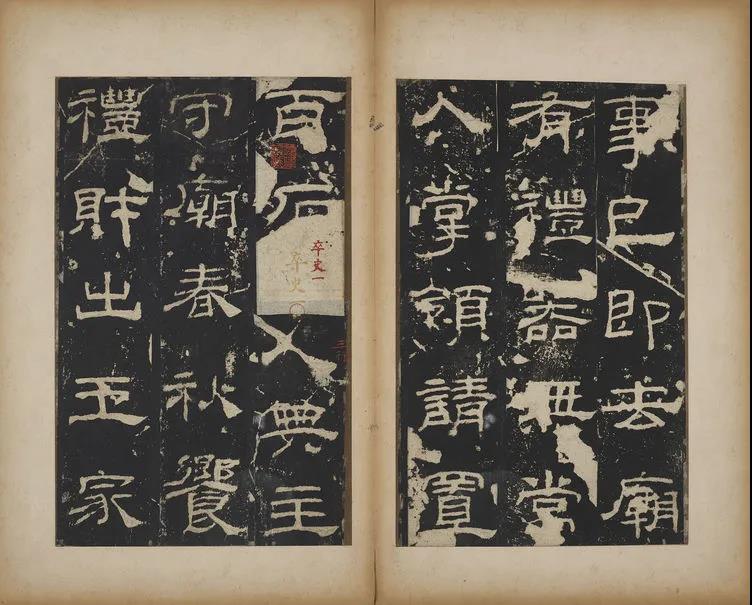 事已即去廟
有禮器無常
人掌領請置
百石
卒史一
卒史
人典主
守廟春秋饗
禮財出王家